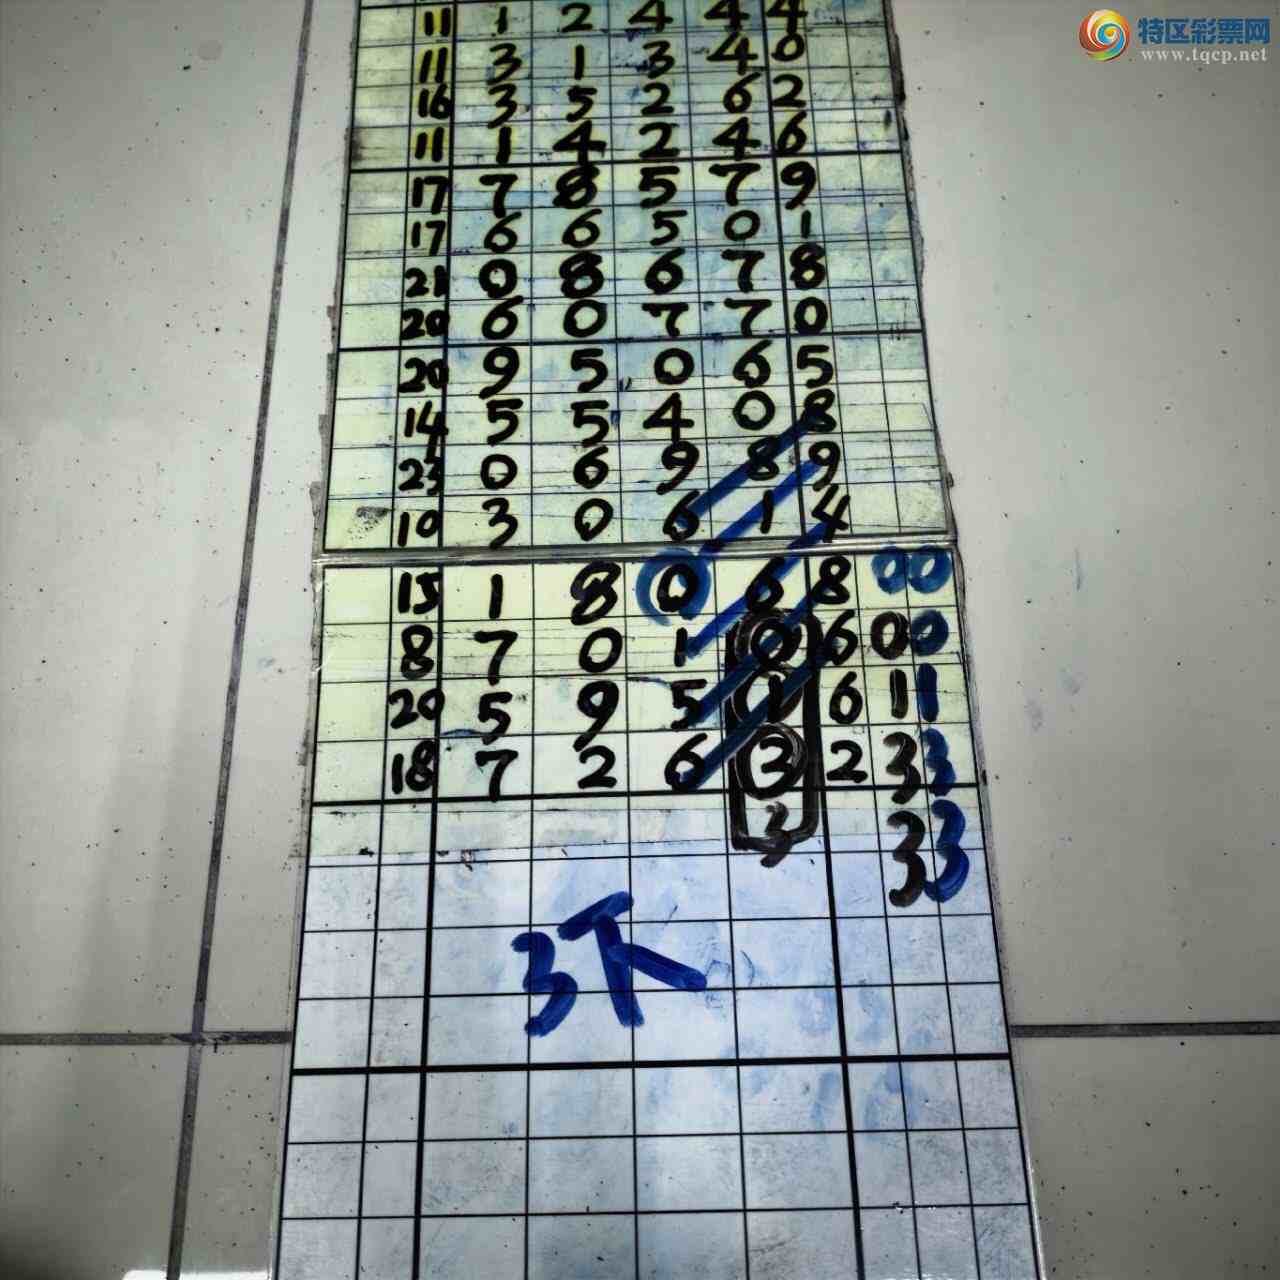 特区彩票网
www.tqcp.net
11 1 2 4 4 4
11 3 1 3 4 0
16 3 5 2 6 2
11 1 4 2 4 6
17 7 8 5 7 9
17 6 6 5 0 1
21 0 8 6 7 8
20 6 0 7 7 0
20 9 5 0 6 5
14 5 5 4 0 8
23 0 6 9 8 9
10 3 0 6 1 4
15 1 8 0 6 8 0 0
8 7 0 1 0 6 0 0
20 5 9 5 1 6 1 1
18 7 2 6 3 2 3 3
3 3 3
3下